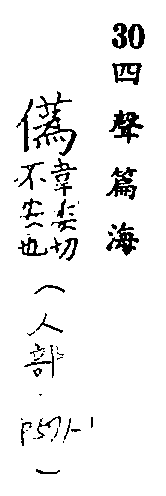 30 四聲篇海
儰 韋委切
不安也
(人部．P571-1)